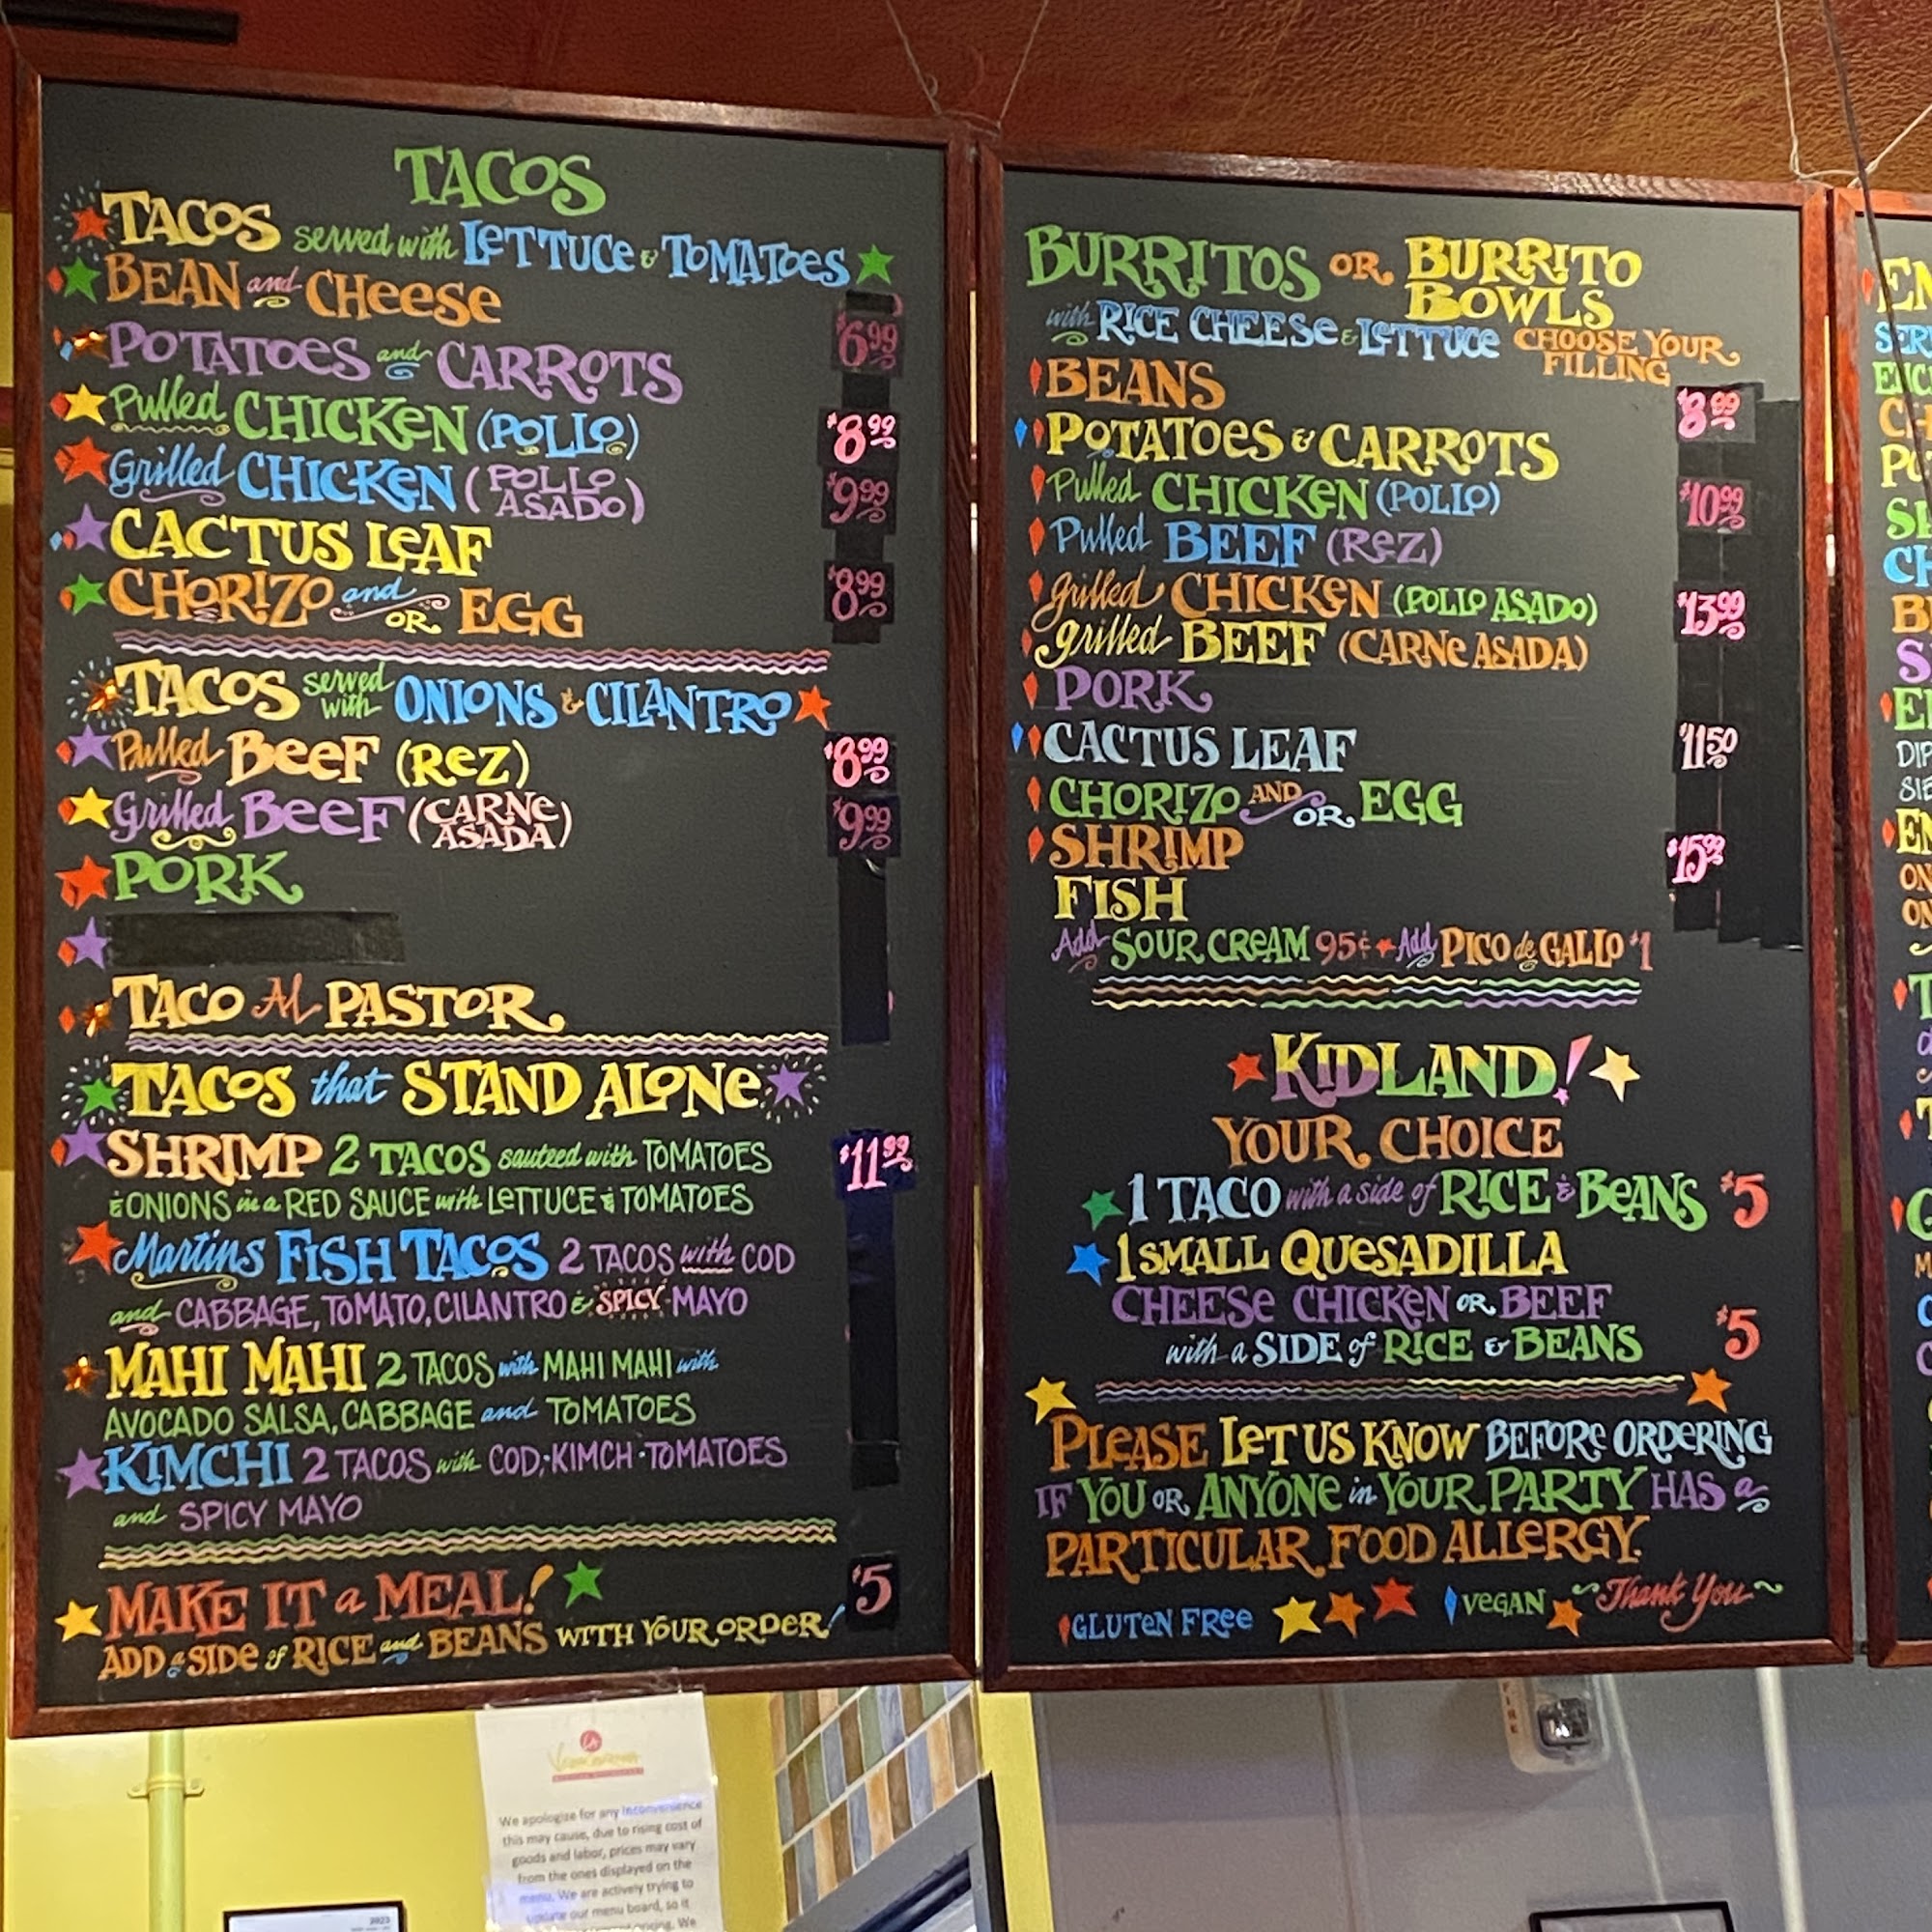 TACOS
TACOS served with LETTUCE & TOMATOES
BEAN and CHEESE
$6.99
POTATOES and CARROTS
Pulled CHICKEN (POLLO) $8.99
Grilled CHICKEN (POLLO ASADO) $9.99
CACTUS LEAF
CHORIZO and OR EGG $8.99
TACOS served with ONIONS & CILANTRO
Pulled BEEF (REZ) $8.99
Grilled BEEF (CARNE ASADA) $9.99
PORK
TACO Al PASTOR
TACOS that STAND ALONE
SHRIMP 2 TACOS sauteed with TOMATOES $11.99
& ONIONS in a RED SAUCE with LETTUCE & TOMATOES
Martins FISH TACOS 2 TACOS with COD
and CABBAGE, TOMATO, CILANTRO & SPICY MAYO
MAHI MAHI 2 TACOS with MAHI MAHI with
AVOCADO SALSA, CABBAGE and TOMATOES
KIMCHI 2 TACOS with COD, · KIMCH · TOMATOES
and SPICY MAYO
MAKE IT a MEAL! $5
ADD a SIDE of RICE and BEANS WITH YOUR ORDER!
BURRITOS OR BURRITO
BOWLS
with RICE CHEESE & LETTUCE CHOOSE YOUR
FILLING
BEANS $8.99
POTATOES & CARROTS
Pulled CHICKEN (POLLO) $10.99
Pulled BEEF (REZ)
grilled CHICKEN (POLLO ASADO) $13.99
grilled BEEF (CARNE ASADA)
PORK
CACTUS LEAF $11.50
CHORIZO AND OR EGG
SHRIMP $15.99
FISH
Add SOUR CREAM 95¢ Add PICO de GALLO $1
KIDLAND!
YOUR CHOICE
1 TACO with a side of RICE & BEANS $5
1 SMALL QUESADILLA
CHEESE CHICKEN OR BEEF
with a SIDE of RICE & BEANS $5
PLEASE LET US KNOW BEFORE ORDERING
IF YOU OR ANYONE in YOUR PARTY HAS a
PARTICULAR FOOD ALLERGY.
GLUTEN FREE VEGAN ~Thank You~
We apologize for any inconvenience
this may cause, due to rising cost of
goods and labor, prices may vary
from the ones displayed on the
menu. We are actively trying to
update our menu board, so it
We
2023
FIRE